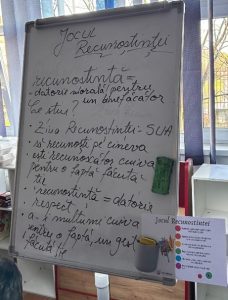 Jocul
Recunoștinței
recunostință =
- datorie morală pentru
un binefăcător
Ce știu?
• Ziua Recunostintei - SUA
• să recunoști pe cineva
• ești recunoscător cuiva
pentru o faptă făcută
ție
• recunostiintă = datorie
respect
• a-i mulțumi cuiva
pentru o faptă, un gest
făcut ție
Jocul Recunostintei